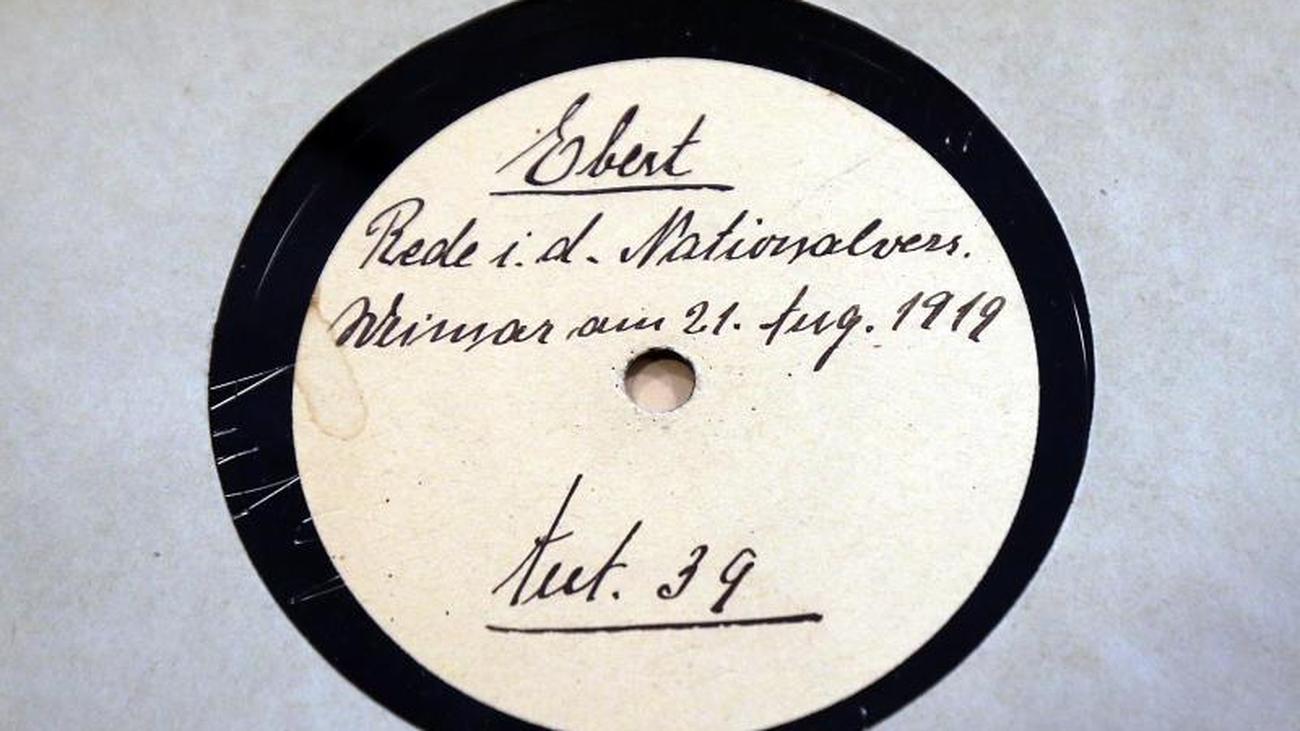 Ebert
Rede i. d. Nationalvers.
Weimar am 21. Aug. 1919
Aut. 39